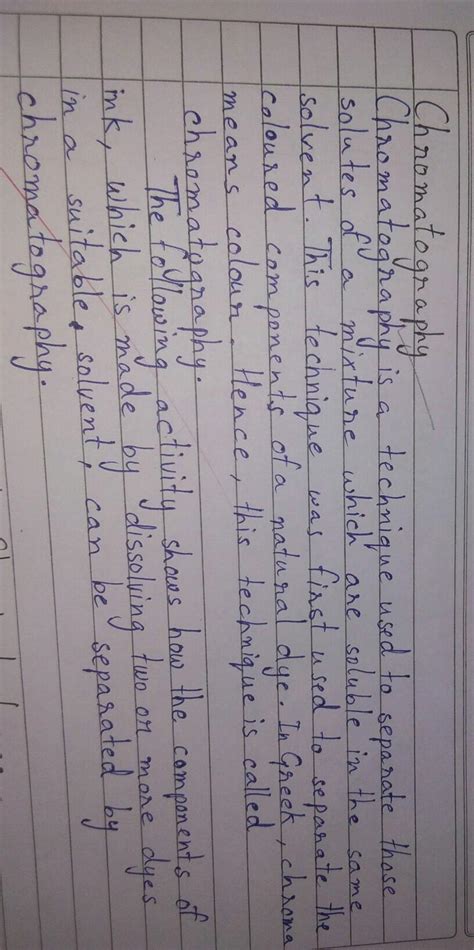 Chromatography
Chromatography is a technique used to separate those
solutes of a mixture which are soluble in the same
solvent. This technique was first used to separate the
coloured components of a natural dye. In Greek, chroma
means colour. Hence, this technique is called
chromatography.
The following activity shows how the components of
ink, which is made by dissolving two or more dyes
in a suitable solvent, can be separated by
chromatography.